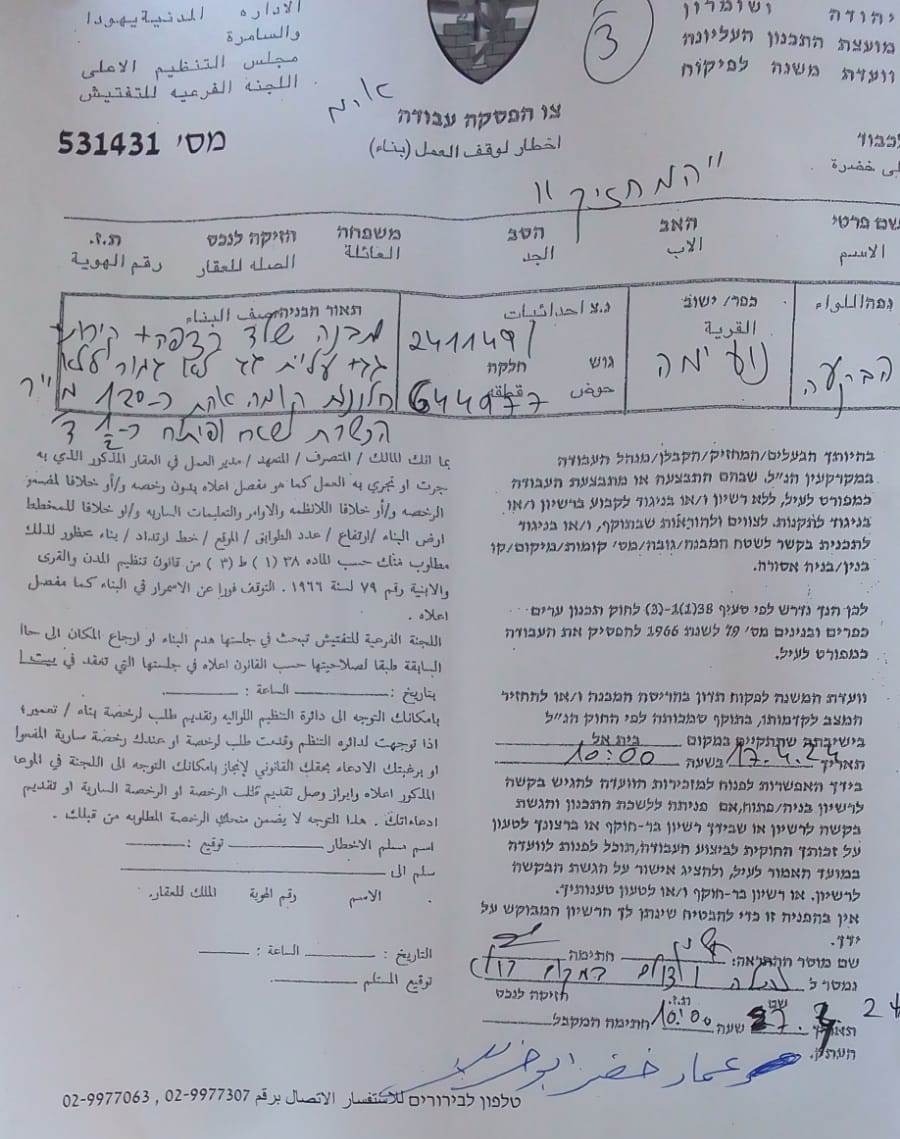 יהודה ושומרון
מועצת התכנון העליונה
וועדת משנה לפיקוח
3
الاداره المدنية يهودا
والسامرة
مجلس التنظيم الاعلى
اللجنه الفرعيه للتفتيش
צו הפסקה עבודה
اخطار لوقف العمل (بناء)
מס' 531431
לכבוד
"המחזיק"
שם פרטי האב הסב משפחה הזיקה לנכס ת.ז.
الاسم الاب الجد العائلة الصله للعقار رقم الهوية
נפה/اللواء
הבקעה
כפר/ ישוב
القرية
נועימה
נ.צ احداثيات
241149
גוש חלקה
حوض قطعة
644977
תאור הבניה/وصف البناء
מבנה שלד רצפה + קירות
גג לא גמור ללא
חלונות קומה אחת כ-120 מ"ר
הכשרת שטח
בהיותך הבעלים/המחזיק/הקבלן/מנהל העבודה
במקרקעין הנ"ל, שבהם התבצעה או מתבצעת העבודה
כמפורט לעיל, ללא רשיון ו/או בניגוד לקבוע ברשיון ו/או
בניגוד לתקנות, לצווים ולהוראות שבתוקף, ו/או בניגוד
לתכנית בקשר לשטח המבנה/גובה/מס' קומות/מיקום/קו
בנין/בניה אסורה.
לכן הנך נדרש לפי סעיף 38(1)ג-(3) לחוק תכנון ערים
כפרים ובנינים מס' 79 לשנת 1966 להפסיק את העבודה
כמפורט לעיל.
וועדת המשנה לפקוח תדון בהריסת המבנה ו/או להחזיר
המצב לקדמותו, בתוקף סמכותה לפי החוק הנ"ל
בישיבתה שתתקיים במקום בית אל
תאריך 17.4.24 בשעה 10:00
בידך האפשרות לפנות למזכירות הוועדה להגיש בקשה
לרשיון בניה/פתוח, אם פניתה ללשכת התכנון והגשת
בקשה לרשיון או שבידך רשיון בר-תוקף או ברצונך לטעון
על זכותך החוקית לביצוע העבודה, תוכל לפנות לוועדה
במועד האמור לעיל, ולהציג אישור על הגשת הבקשה
לרשיון. או רשיון בר-תוקף ו/או לטעון טענותיך.
אין בהפניה זו כדי להבטיח שינתן לך הרשיון המבוקש על
ידך.
שם מוסר ההתראה: חתימה
נמסר ל
שם ת.ז. הזיקה לנכס
תאריך 24 שעה 10:00 חתימת המקבל
העתק.
بما انك المالك / المتصرف / المتعهد / مدير العمل في العقار المذكور الذي به
جرت او تجري به العمل كما هو مفصل اعلاه بدون رخصه و/أو خلافا لمضمون
الرخصه و/أو خلافا للانظمه والاوامر والتعليمات الساريه و/او خلافا للمخطط
ارض البناء /ارتفاع / عدد الطوابق / الموقع / خط ارتداد / بناء محظور لذلك
مطلوب منك حسب الماده ٣٨ (١) ط (٣) من قانون تنظيم المدن والقرى
والابنية رقم ٧٩ لسنة ١٩٦٦ . التوقف فورا عن الاسمرار في البناء كما مفصل
اعلاه .
اللجنة الفرعية للتفتيش تبحث في جلستها هدم البناء او ارجاع المكان الى حاا
السابقة طبقا لصلاحيتها حسب القانون اعلاه في جلستها التي تنعقد في بيت
بتاريخ : الساعة :
بامكانك التوجه الى دائرة التنظيم اللوائيه وتقديم طلب لرخصة بناء / تعمير؛
اذا توجهت لدائره التنظم وقدمت طلب لرخصة او عندك رخصة سارية المفعوا
او برغبتك الادعاء بحقك القانوني لإنجاز بامكانك التوجه الى اللجنة في الموعا
المذكور اعلاه وابراز وصل تقديم طلب الرخصة او الرخصة السارية او تقديم
ادعاءاتك . هذا التوجه لا يضمن منحك الرخصة المطلوبه من قبلك .
اسم مسلم الاخطار توقيع :
سلم الى
الاسم رقم الهوية الملك للعقار.
التاريخ : الساعة :
توقيع المستلم
عمار خضر ابو خر
טלפון לבירורים للاستفسار الاتصال برقم 02-9977307 , 02-9977063